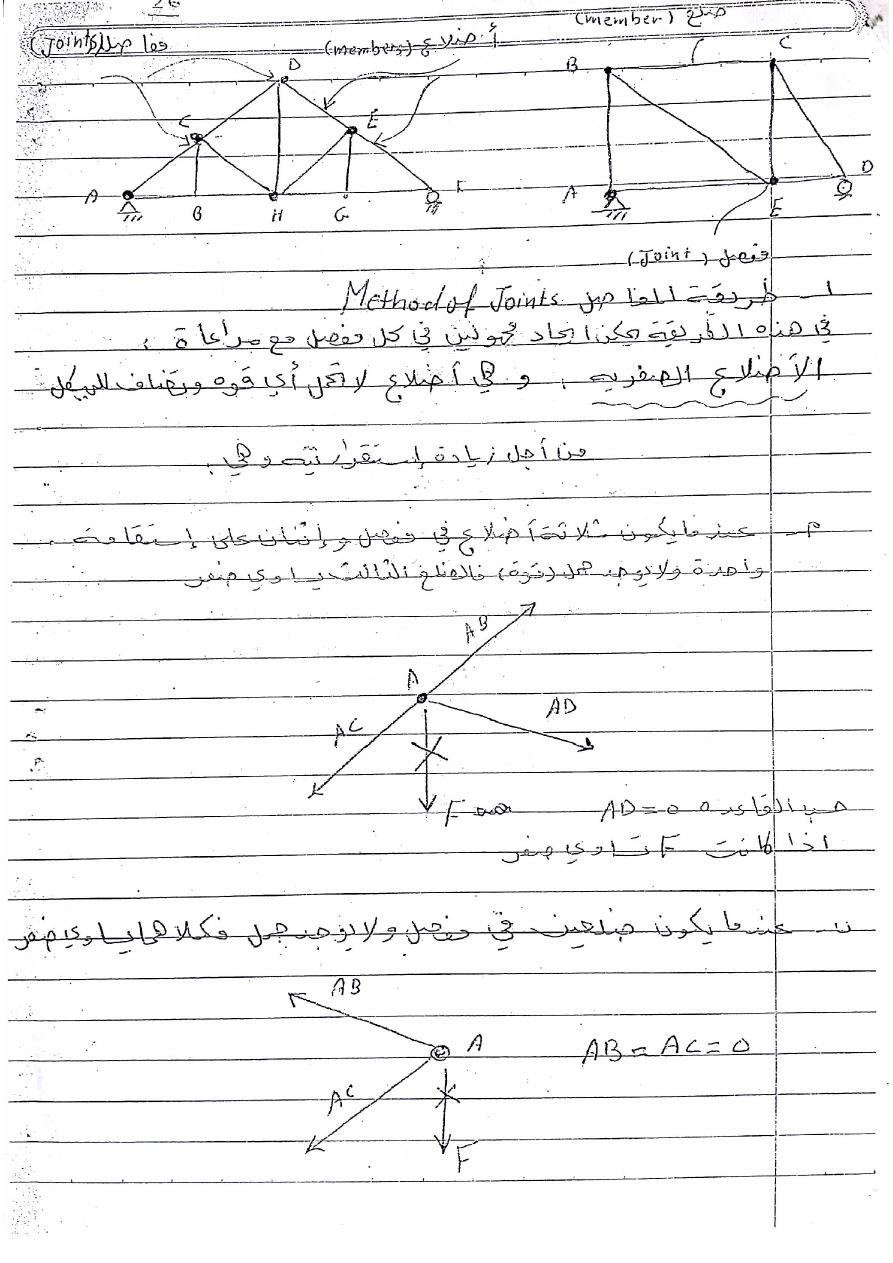 ضلع (member)
مفاصل (Joints)
أضلاع (members)
D
C
E
A
B
H
G
F
B
C
A
E
D
مفصل (Joint)
١- طريقة المفاصل Method of Joints
في هذه الطريقة يمكن ايجاد مجهولين في كل مفصل مع مراعاة :
الأضلاع الصفريه : وهي أضلاع لا تحمل أي قوه وتضاف للهيكل
من أجل زيادة إستقراريته وهي :
م- عندما يكون ثلاثة أضلاع في مفصل وإثنان على إستقامة
واحدة ولا يوجد حمل (قوة) فالضلع الثالث يساوي صفر
AB
A
AD
AC
F
حسب القاعده AD = 0
اذا كانت F تساوي صفر
ن- عندما يكون ضلعين في مفصل ولا يوجد حمل فكلاهما يساوي صفر
AB
A
AB = AC = 0
AC
F